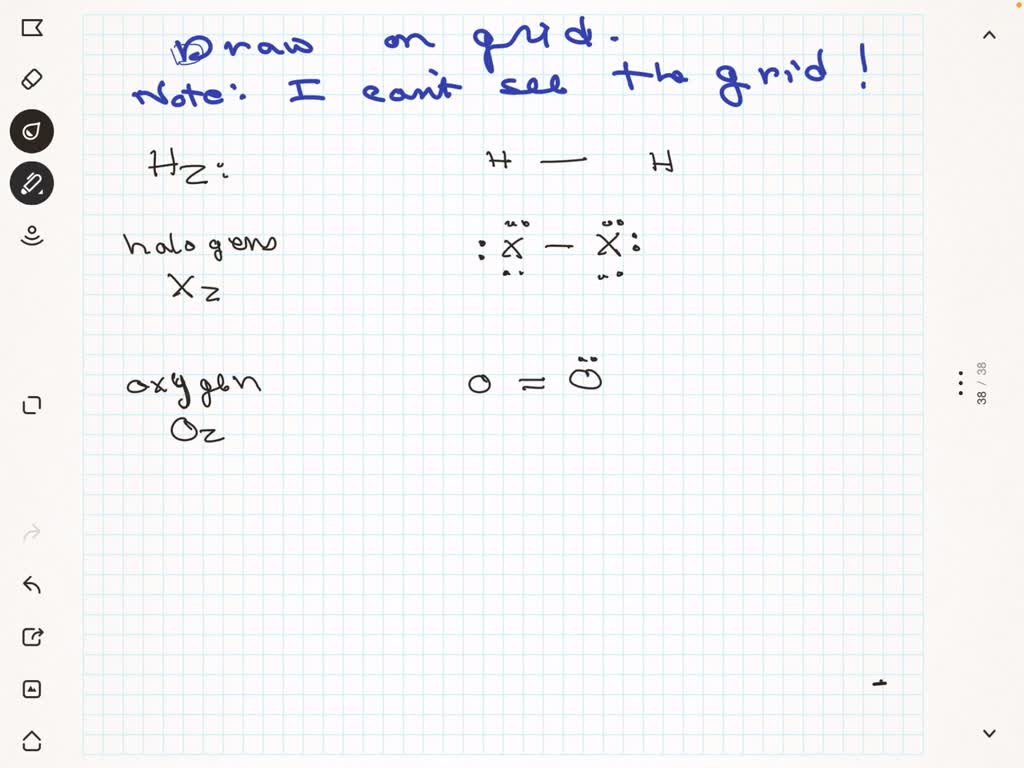 Draw on grid.
Note: I can't see the grid!
H2: H — H
halogens :Ẍ — Ẍ:
X2
oxygen O = Ö
O2
38 / 38